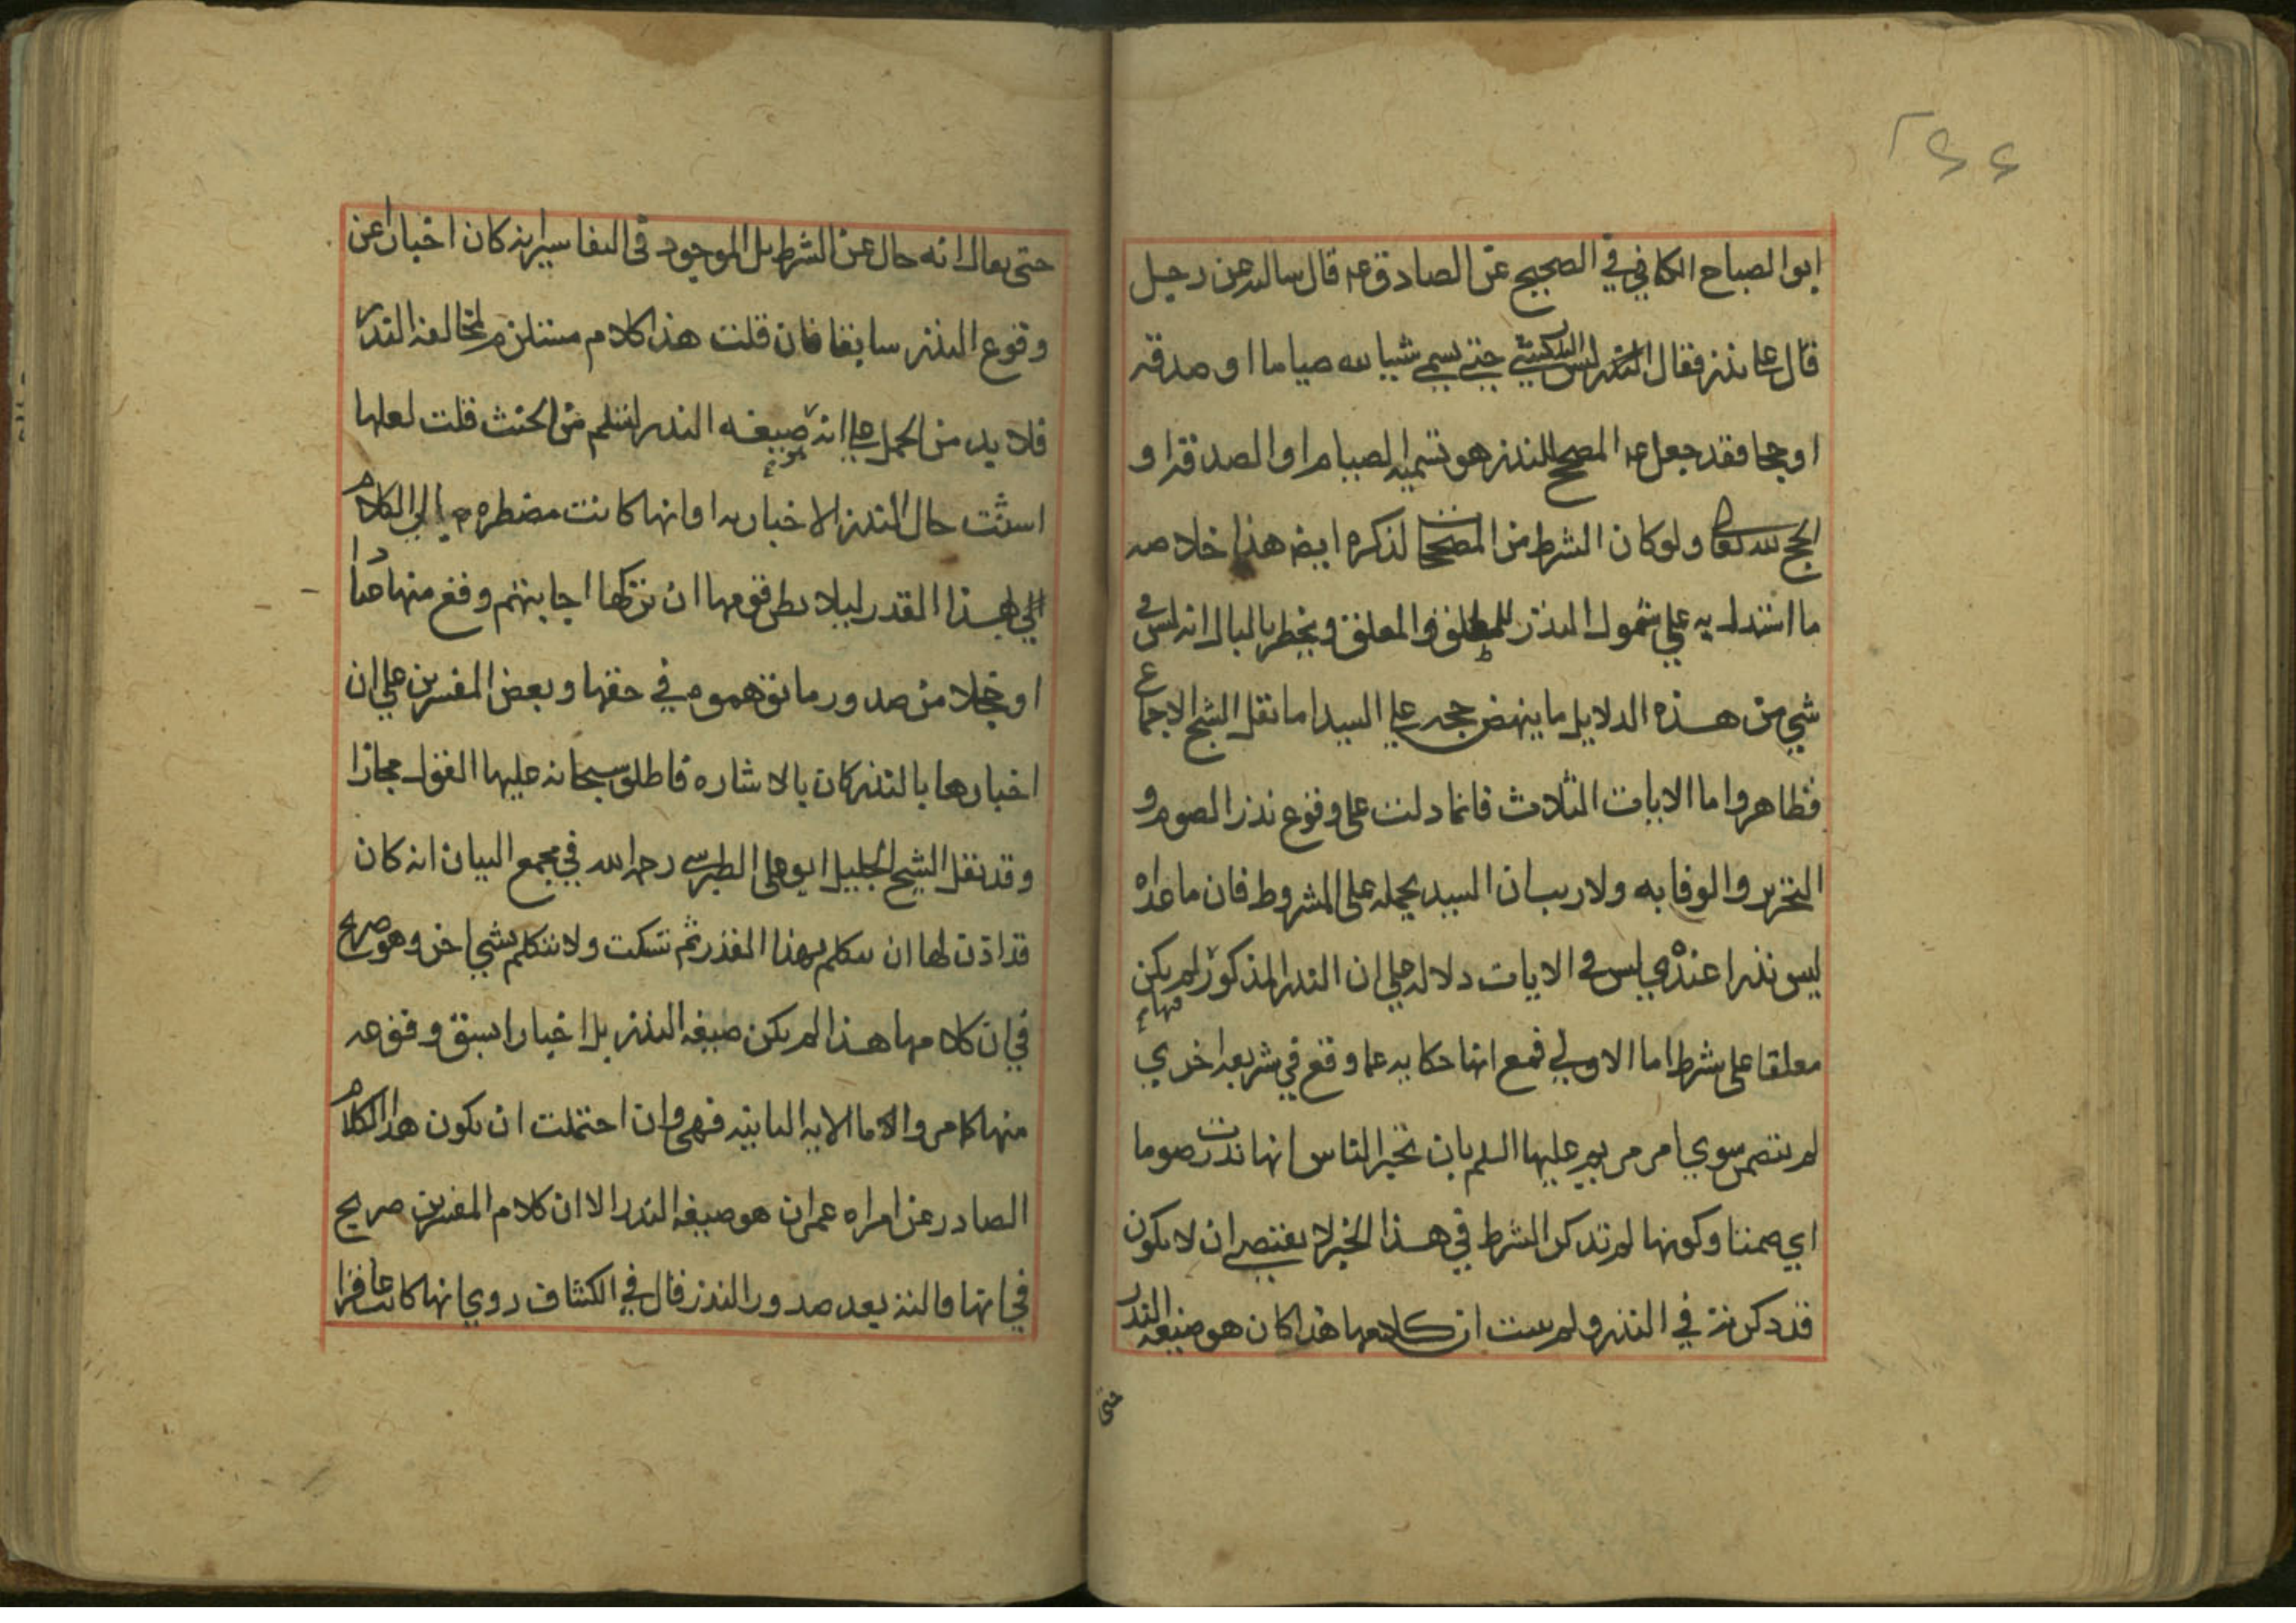 ٢٤٤
ابوا لصباح الكافي في الصحيح عن الصادق عه قال سالته عن رجل
قال على نذر فقال النذر ليس بشيئ حتى يسمي شيا لله صياما او صدقه
او حجا فقد جعل عه المصحح للنذر هو تسميه الصيام او الصدقه او
الحج لله تعالى ولو كان الشرط من المصححا لذكره ايضه هذا خلاصه
ما استدل به على شمول النذر للمطلق والمعلق ويخطر بالبال انه ليس في
شي من هذه الدلايل ما ينهض حجه على السيد اما نقل الشيخ الاجماع
فظاهر واما الايات الثلاث فانما دلت على وقوع نذر الصوم و
التحرير والوفا به ولا ريب ان السيد يحمله على المشروط فان ما عداه
ليس نذرا عنده وليس في الايات دلاله على ان النذر المذكور فيها لم يكن
معلقا على شرط اما الاولي فمع انها حكايه عما وقع في شريعه اخري
لم يتضمن سوي امر مريم عليها السلم بان تخبر الناس انها نذرت صوما
اي صمتا وكونها لم تذكر الشرط في هذا الخبر لا يقتضي ان لا يكون
قد ذكرته في النذر ولم يثبت ان كلامها هذا كان هو صيغه النذر
حتى
حتى يقال انه خال عن الشرط بل الموجود في التفاسير انه كان اخبارا عن
وقوع النذر سابقا فان قلت هذا كلام مستلزم لمخالفه النذر
فلا بد من الحمل على انه صيغه النذر لتسلم من الحنث قلت لعلها
استثنت حال النذر الاخبار به او انها كانت مضطره الي الكلام
بهذا القدر ليلا يظن قومها ان تركها اجابتهم وقع منها عمدا
او خجلا من صدور ما توهموه في حقها وبعض المفسرين على ان
اخبارها بالنذر كان بالاشاره فاطلق سبحانه عليها القول مجازا
وقد نقل الشيخ الجليل ابو على الطبرسي رحه الله في مجمع البيان انه كان
قد اذن لها ان تتكلم بهذا القدر ثم تسكت ولا تتكلم بشي اخر وهو صريح
في ان كلامها هذا لم يكن صيغه النذر بل اخبارا بسبق وقوعه
منها كما مر واما الايه الثانيه فهي وان احتملت ان يكون هذا الكلام
الصادر عن امراه عمران هو صيغه النذر الا ان كلام المفسرين صريح
في انها قالته بعد صدور النذر قال في الكشاف روي انها كانت عاقرا